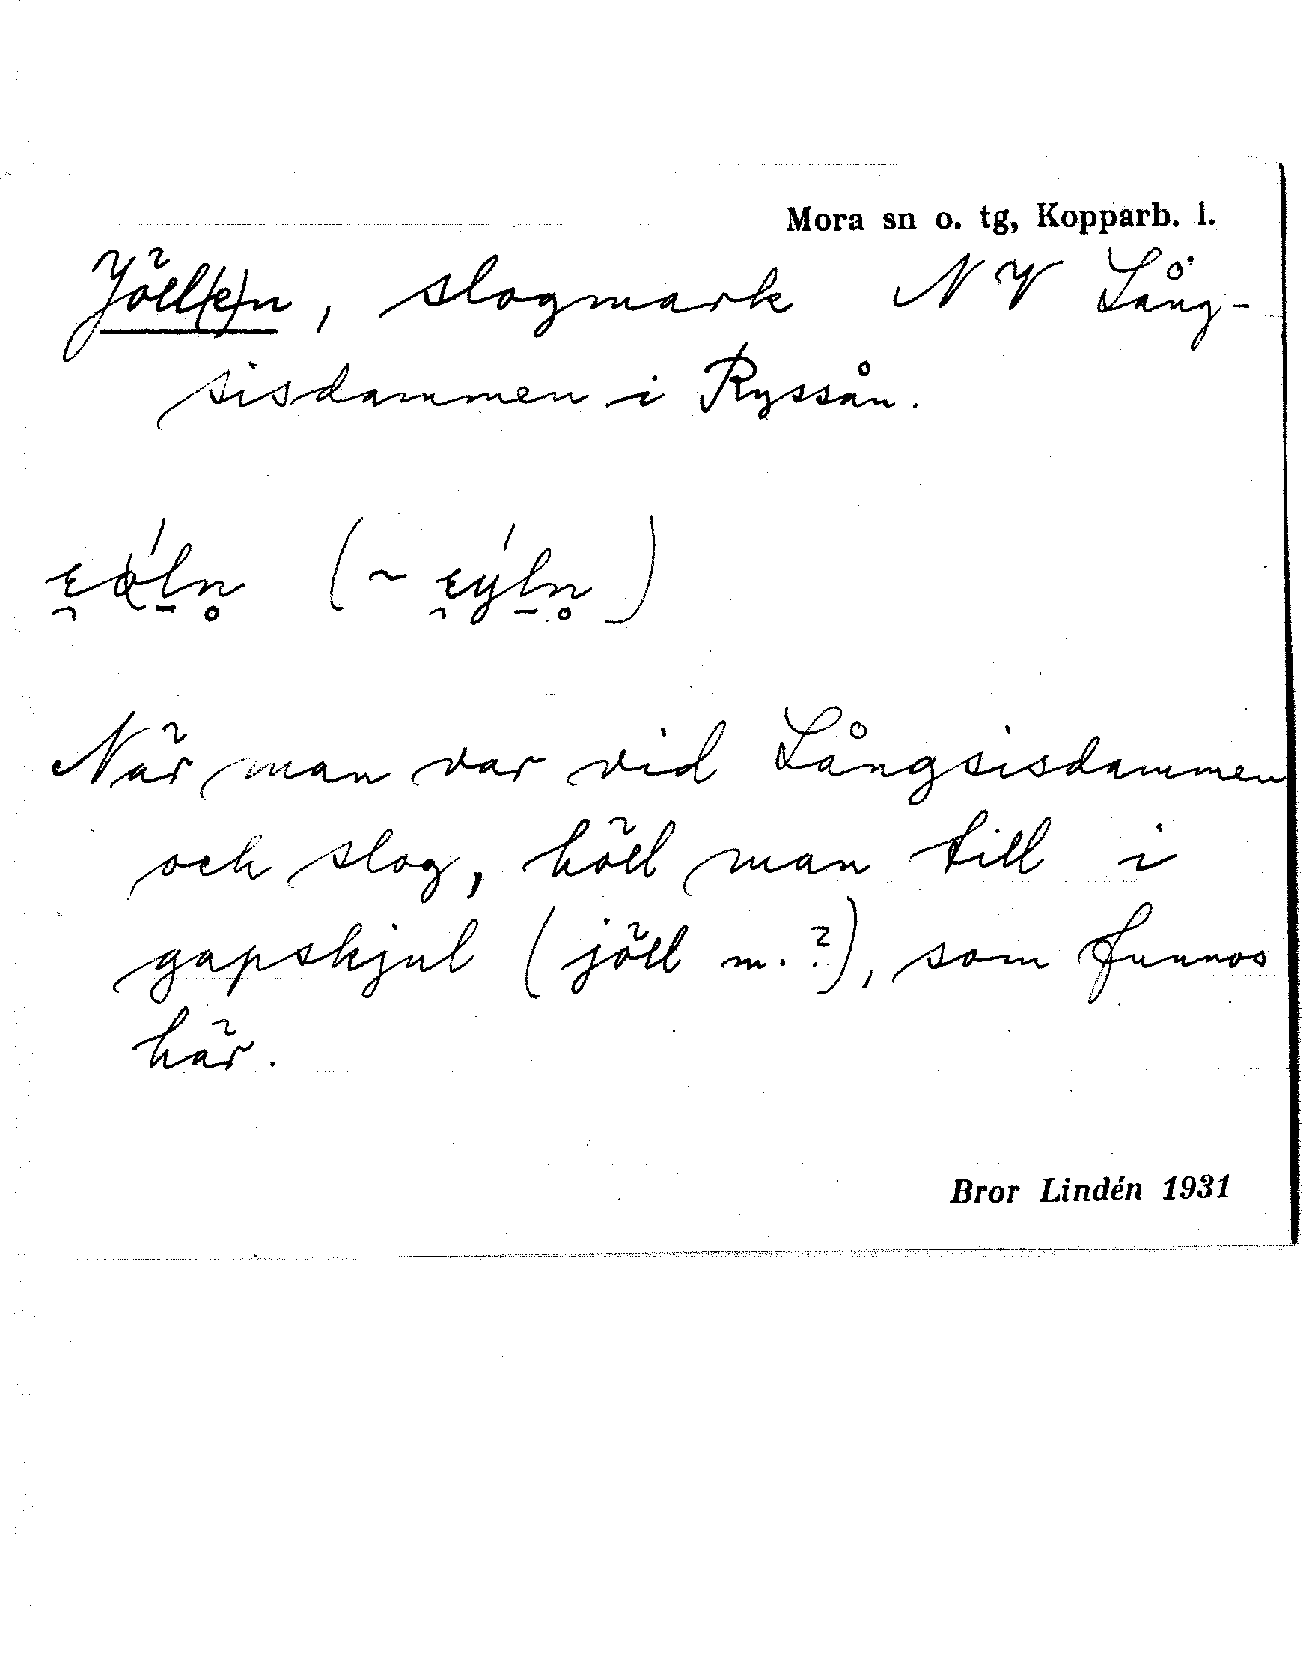 Mora sn o. tg, Kopparb. l.
Jöll(e)n, slogmark NV Lång-
sisdammen i Ryssån.
När man var vid Långsisdammen
och slog, höll man till i
gapskjul (jöll m.?), som funnos
här.
Bror Lindén 1931